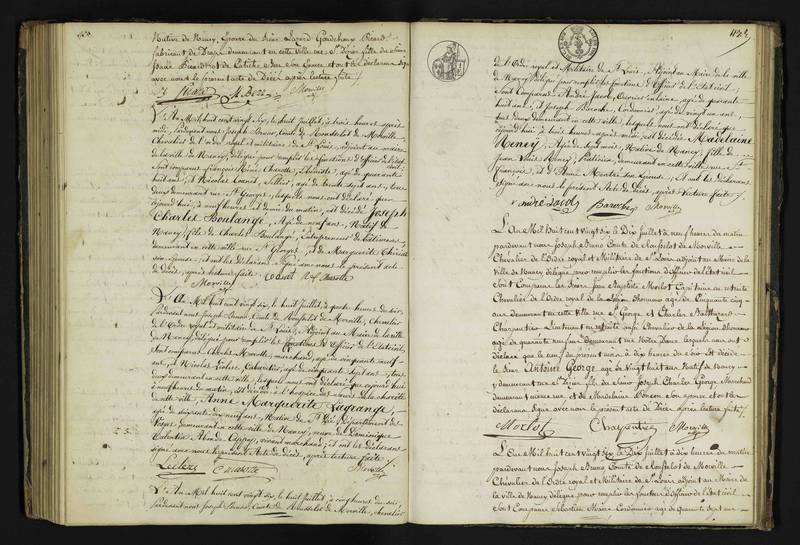 Native de Nancy, Epouse du Sieur Lazard Goudchaux Picard
fabricant de Draps demeurant en cette ville rue St Dizier fille de
et ont les déclarans signé
avec nous le présent acte de Décès après lecture faite.
Morville
L'An Mil huit cent vingt six, le huit Juillet, à trois heures après
midi, pardevant nous Joseph Bruno, Comte de Rousselot de Morville,
Chevalier de l'ordre royal et militaire de St Louis, adjoint au maire
de la ville de Nancy, délégué pour remplir les fonctions d'officier de l'Etat civil,
Sont comparus françois Rémi Charotte, Ebéniste, agé de quarante
huit ans, et Nicolas Canot, Sellier, agé de trente sept ans, tous
deux demeurant rue St Georges, lesquels nous ont déclaré que
cejourd'hui, à neuf heures et demie du matin, est décédé Joseph
Charles Boulangé, Agé de neuf ans, Natif de
Nancy, fils de Charles Boulangé, Entrepreneur de bâtimens,
demeurant en cette ville rue St Georges, et de Marguerite
son épouse; et ont les déclarans signé avec nous le présent acte
de Décès, après lecture faite. Canot Charotte
Morville
L'An Mil huit cent vingt six, le huit Juillet, à quatre heures du soir,
Pardevant nous Joseph Bruno, Comte de Rousselot de Morville, Chevalier
de l'Ordre royal et militaire de St Louis, Adjoint au Maire de la ville
de Nancy, délégué pour remplir les fonctions d'officier de l'Etat civil,
Sont comparus marchand, agé de cinquante neuf
ans, et Nicolas Cabaretier, agé de cinquante sept ans, tous
deux demeurant en cette ville, lesquels nous ont déclaré que cejourd'hui
à neuf heures du matin, est décédée à l'hospice des
de cette ville, Anne Marguerite Lagrange,
agée de soixante dix neuf ans, Native de St Dié, Département des
Vosges, demeurant en cette ville de Nancy, veuve de Dominique
vivant marchand; et ont les déclarans
signé avec nous le présent Acte de décès, après lecture faite.
Leclerc Morville
L'An Mil huit cent vingt six, le huit Juillet, à cinq heures du soir,
Pardevant nous Joseph Bruno, Comte de Rousselot de Morville, chevalier
de l'Ordre royal et Militaire de St Louis, Adjoint au Maire de la ville
de Nancy délégué pour remplir les fonctions d'Officier de l'Etat civil,
Sont Comparus André Jacob, Ouvrier agé de quarante
huit ans, et Joseph Baroche, Cordonnier, agé de vingt un ans,
tous deux demeurant en cette ville; lesquels nous ont déclaré que
cejourd'hui à trois heures après midi est décédée Madelaine
Heney, Agée de sept mois, Native de Nancy, fille de
Jean Heney, demeurant en cette ville rue St
François, et d'Anne son épouse, et ont les déclarans
Signé avec nous le présent Acte de Décès, après Lecture faite.
André Jacob Baroche Morville
L'An Mil huit cent vingt six le Dix Juillet à neuf heures du matin
pardevant nous Joseph Bruno Comte de Rousselot de Morville
Chevalier de l'Ordre royal et Militaire de St Louis adjoint au Maire de la
Ville de Nancy délégué pour remplir les fonctions d'officier de l'Etat civil
Sont Comparus les Sieurs Jean Baptiste Morlot Capitaine en retraite
Chevalier de l'Ordre royal de la Légion d'honneur agé de Cinquante cinq
ans demeurant en cette Ville rue St George et Charles Balthazard
Charpentier Lieutenant en retraite aussi Chevalier de la Légion d'honneur
agé de quarante neuf ans Demeurant rue Notre Dame lesquels nous ont
déclaré que le neuf du présent mois à dix heures du soir est décédé
le Sieur Antoine George agé de Vingt huit ans Natif de Nancy
y demeurant rue St Dizier fils du Sieur Joseph Charles George Marchand
demeurant même rue et de Madelaine son épouse et ont les
déclarans signé avec nous le présent acte de Décès après lecture faite.
Morlot Charpentier Morville
L'An Mil huit cent vingt six le Dix Juillet à dix heures du matin
pardevant nous Joseph Bruno Comte de Rousselot de Morville
Chevalier de l'Ordre royal et Militaire de St Louis adjoint au Maire de
la ville de Nancy délégué pour remplir les fonctions d'officier de l'Etat civil
Sont Comparus Sébastien Cordonnier agé de Quarante sept ans